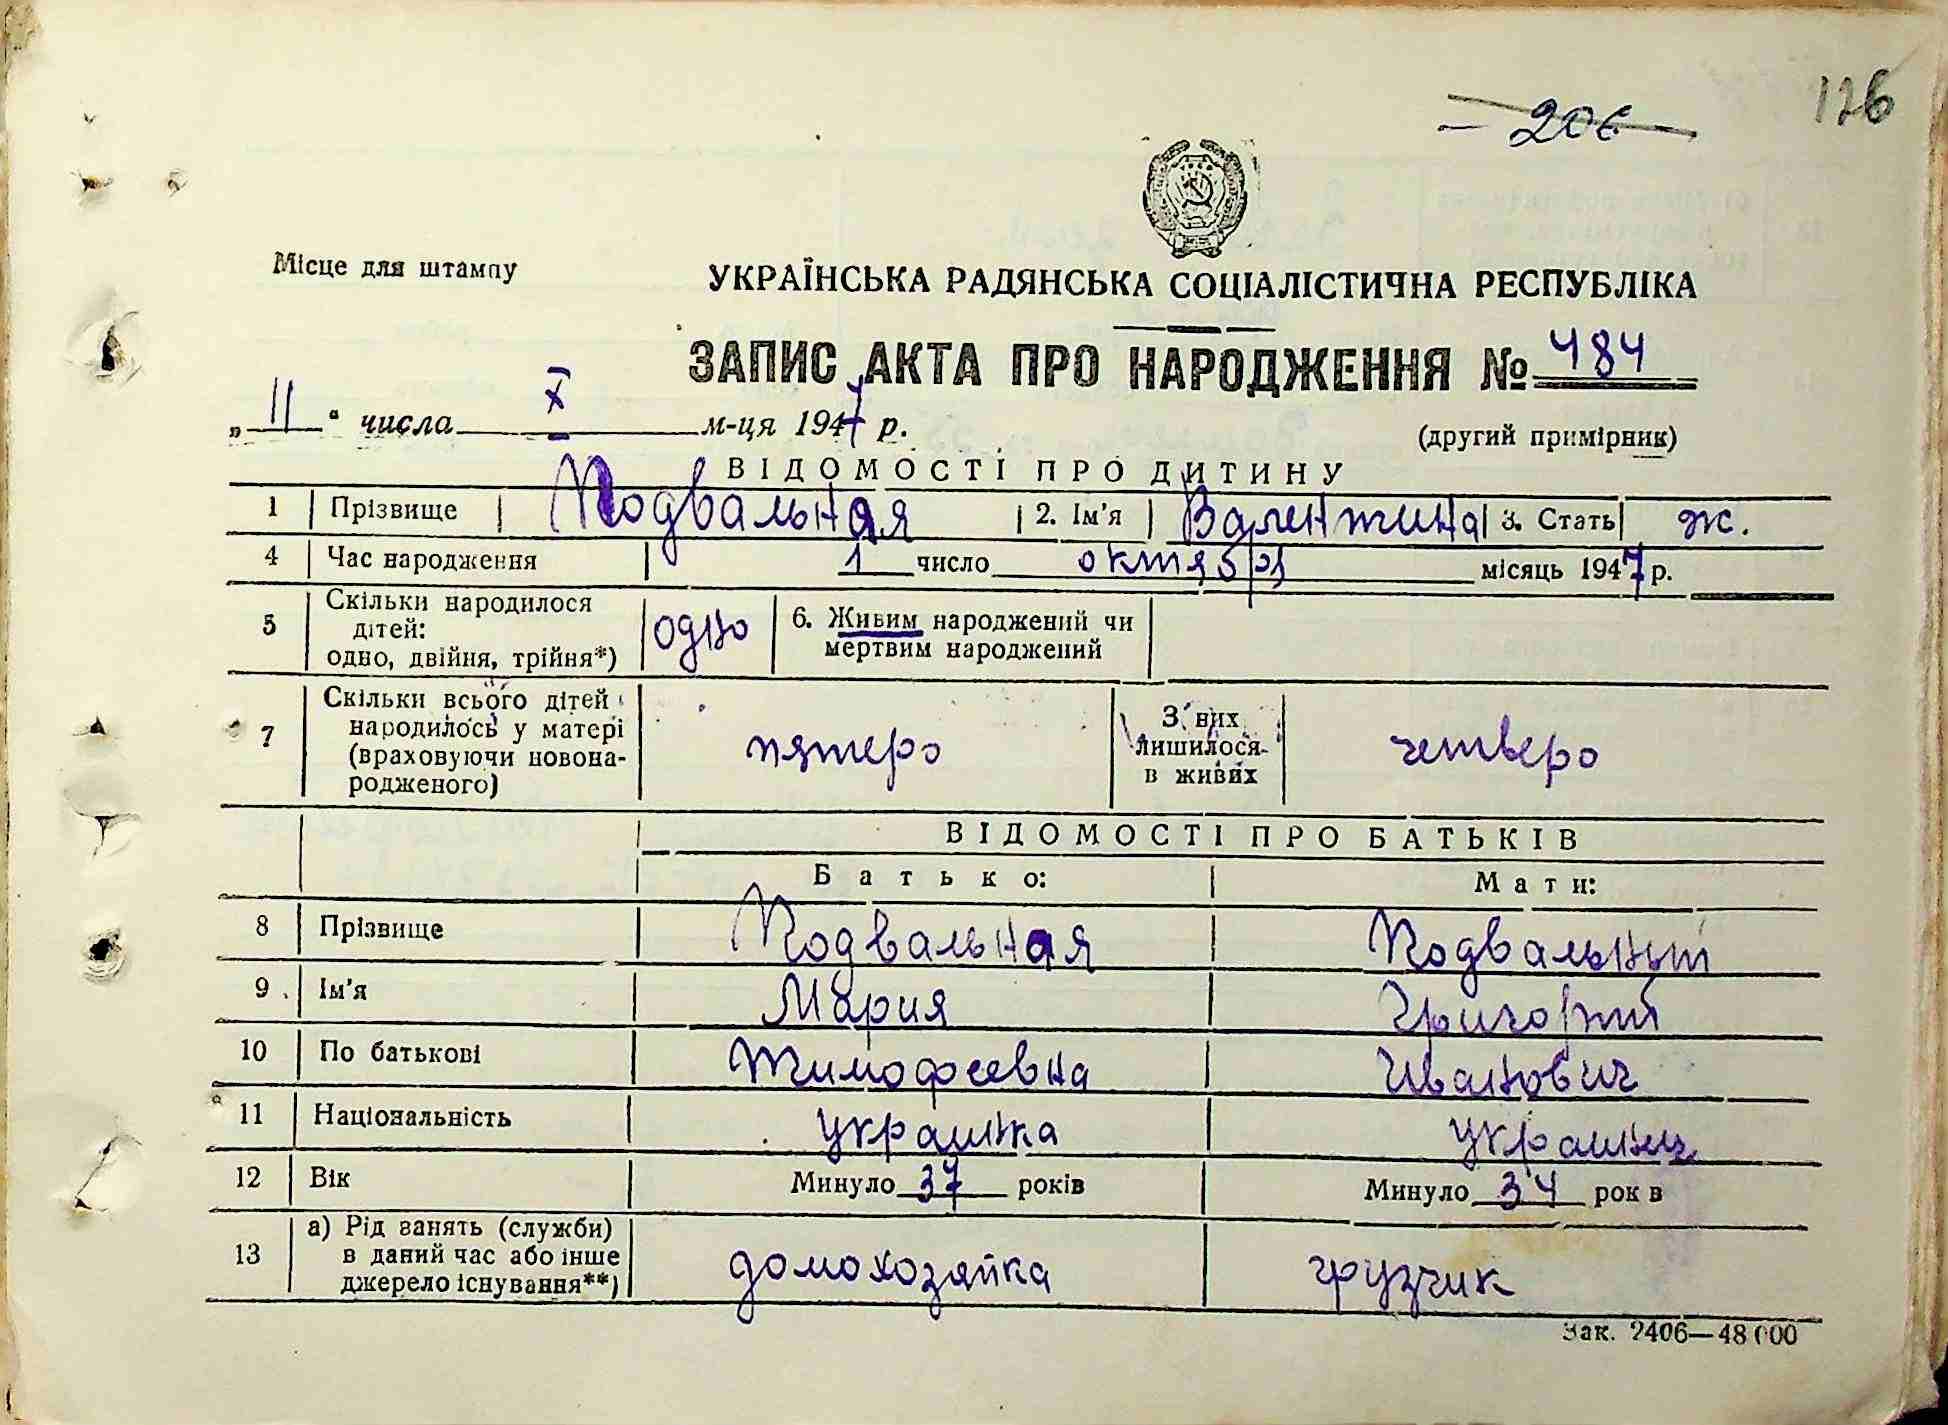 126
206
Місце для штампу
УКРАЇНСЬКА РАДЯНСЬКА СОЦІАЛІСТИЧНА РЕСПУБЛІКА
ЗАПИС АКТА ПРО НАРОДЖЕННЯ № 484
„11“ числа X м-ця 1947 р.
(другий примірник)
ВІДОМОСТІ ПРО ДИТИНУ
1 Прізвище Подвальная 2. Ім'я Валентина 3. Стать ж.
4 Час народження 1 число октября місяць 1947 р.
5 Скільки народилося дітей: одно, двійня, трійня*) одно 6. Живим народжений чи мертвим народжений
7 Скільки всього дітей народилось у матері (враховуючи новонародженого) пятеро З них лишилося в живих четверо
ВІДОМОСТІ ПРО БАТЬКІВ
Батько: Мати:
8 Прізвище Подвальная Подвальный
9 Ім'я Мария Григорий
10 По батькові Тимофеевна Иванович
11 Національність украинка украинец
12 Вік Минуло 37 років Минуло 34 рок в
13 а) Рід занять (служби) в даний час або інше джерело існування**) домохозяйка грузчик
Зак. 2406—48000